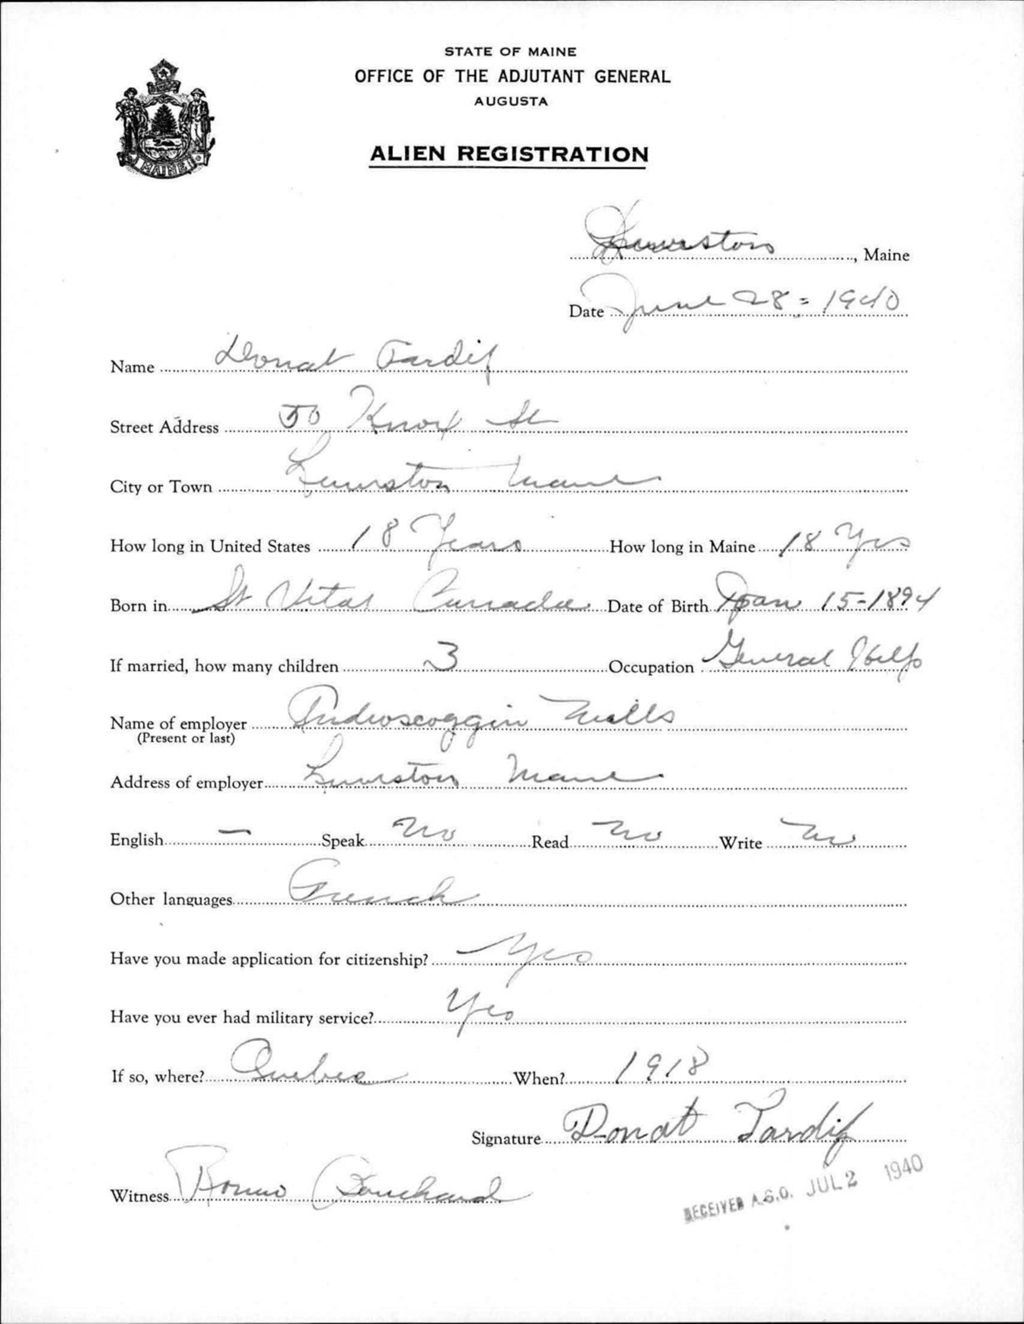 STATE OF MAINE
OFFICE OF THE ADJUTANT GENERAL
AUGUSTA
MAINE
ALIEN REGISTRATION
Lewiston, Maine
Date June 28 = 1940
Name Donat Tardif
Street Address 50 Knox St
City or Town Lewiston Maine
How long in United States 18 Years How long in Maine 18 Yrs
Born in St Vital Canada Date of Birth Jan 15-1894
If married, how many children 3 Occupation General Help
Name of employer Androscoggin Mills
(Present or last)
Address of employer Lewiston Maine
English - Speak No Read No Write No
Other languages French
Have you made application for citizenship? Yes
Have you ever had military service? Yes
If so, where? Quebec When? 1918
Signature Donat Tardif
Witness Bouchard
RECEIVED A.G.O. JUL 2 1940